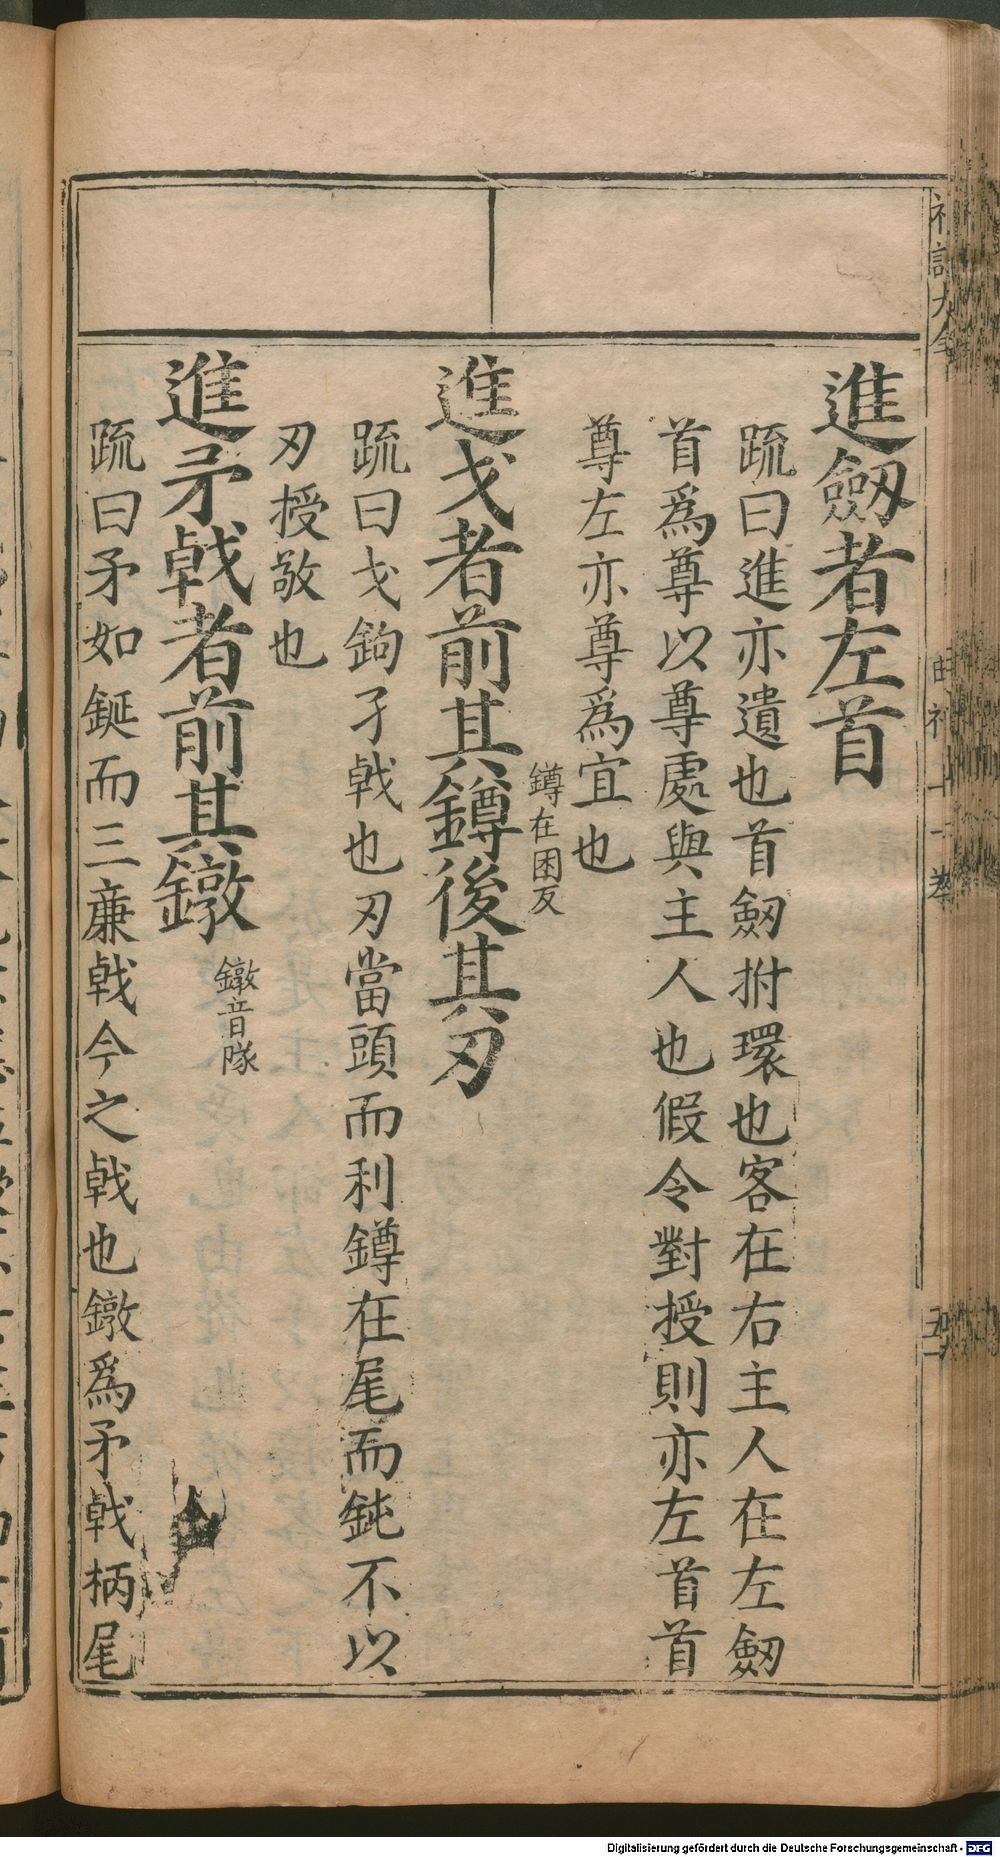 進劒者左首
䟽曰進亦遺也首劒拊環也客在右主人在左劒
首爲尊以尊處與主人也假令對授則亦左首首
尊左亦尊爲宜也
進戈者前其鐏後其刃
鐏在困反
䟽曰戈鉤孑戟也刃當頭而利鐏在尾而鈍不以
刃授敬也
進矛戟者前其鐓
鐓音隊
䟽曰矛如鋋而三廉戟今之戟也鐓爲矛戟柄尾
Digitalisierung gefördert durch die Deutsche Forschungsgemeinschaft - DFG